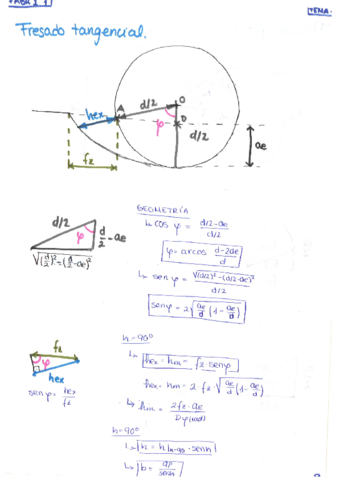 TEMA
Fresado tangencial.
hex
A
d/2
O
φ
D
d/2
fz
ae
GEOMETRÍA
d/2
φ
d/2 - ae
√((d/2)²-(d/2-ae)²)
↳ cos φ = (d/2-ae)/(d/2)
φ = arcos (d-2ae)/d
↳ sen φ = √((d/2)²-(d/2-ae)²)/(d/2)
sen φ = 2√(ae/d (1-ae/d))
fz
φ
hex
sen φ = hex/fz
h=90°
↳ hex = hm = fz·sen φ
hex = hm = 2 fz·√(ae/d (1-ae/d))
↳ hm = 2fz·ae/Dφ(rad)
h=90°
↳ h = h|h=90·senh
↳ b = ap/senh